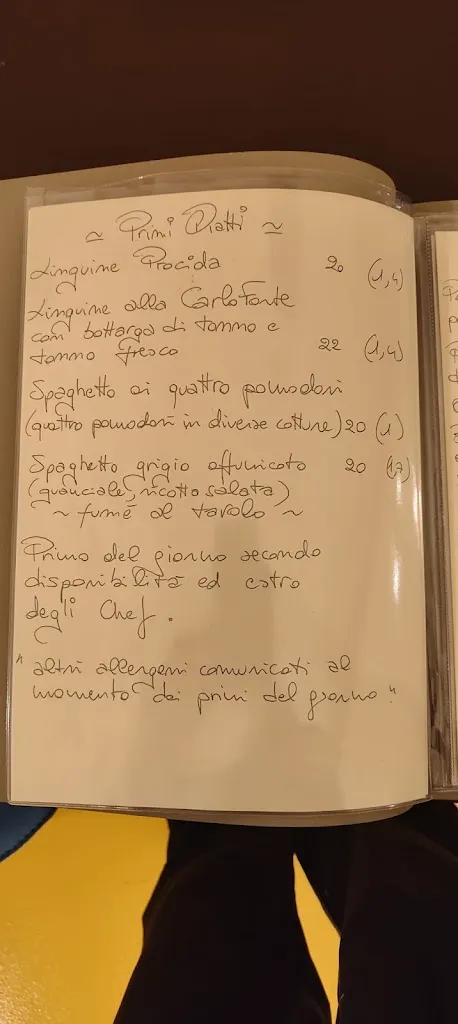 ~ Primi Piatti ~
Linguine Procida 20 (1,4)
Linguine alla CarloForte
con bottarga di tonno e
tonno fresco 22 (1,4)
Spaghetto ai quattro pomodori
(quattro pomodori in diverse cotture) 20 (1)
Spaghetto grigio affumicato 20 (1,7)
(guanciale, ricotta salata)
~ fumé al tavolo ~
Primo del giorno secondo
disponibilità ed estro
degli Chef.
" altri allergeni comunicati al
momento dei primi del giorno "